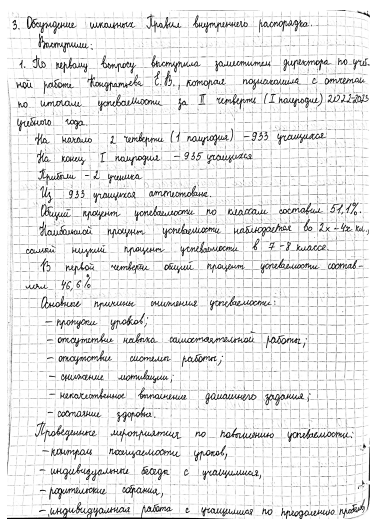 3. Обсуждение школьных Правил внутреннего распорядка.
Выступили:
1. По первому вопросу выступила заместитель директора по учеб-
ной работе Кондратьева Е.В., которая познакомила с отчетом
по итогам успеваемости за II четверть (I полугодие) 2022-2023
учебного года.
На начало 2 четверти (1 полугодия) - 933 учащихся
На конец I полугодия - 935 учащихся
Прибыли - 2 ученика
Из 933 учащихся аттестованы.
Общий процент успеваемости по классам составил 51,1%.
Наибольший процент успеваемости наблюдается во 2х-4х кл.,
самый низкий процент успеваемости в 7-8 классе.
В первой четверти общий процент успеваемости состав-
лял 46,6%
Основные причины снижения успеваемости:
- пропуски уроков;
- отсутствие навыка самостоятельной работы;
- отсутствие системы работы;
- снижение мотивации;
- некачественное выполнение домашнего задания;
- состояние здоровья.
Проведенные мероприятия по повышению успеваемости:
- контроль посещаемости уроков,
- индивидуальные беседы с учащимися,
- родительские собрания,
- индивидуальная работа с учащимися по преодолению